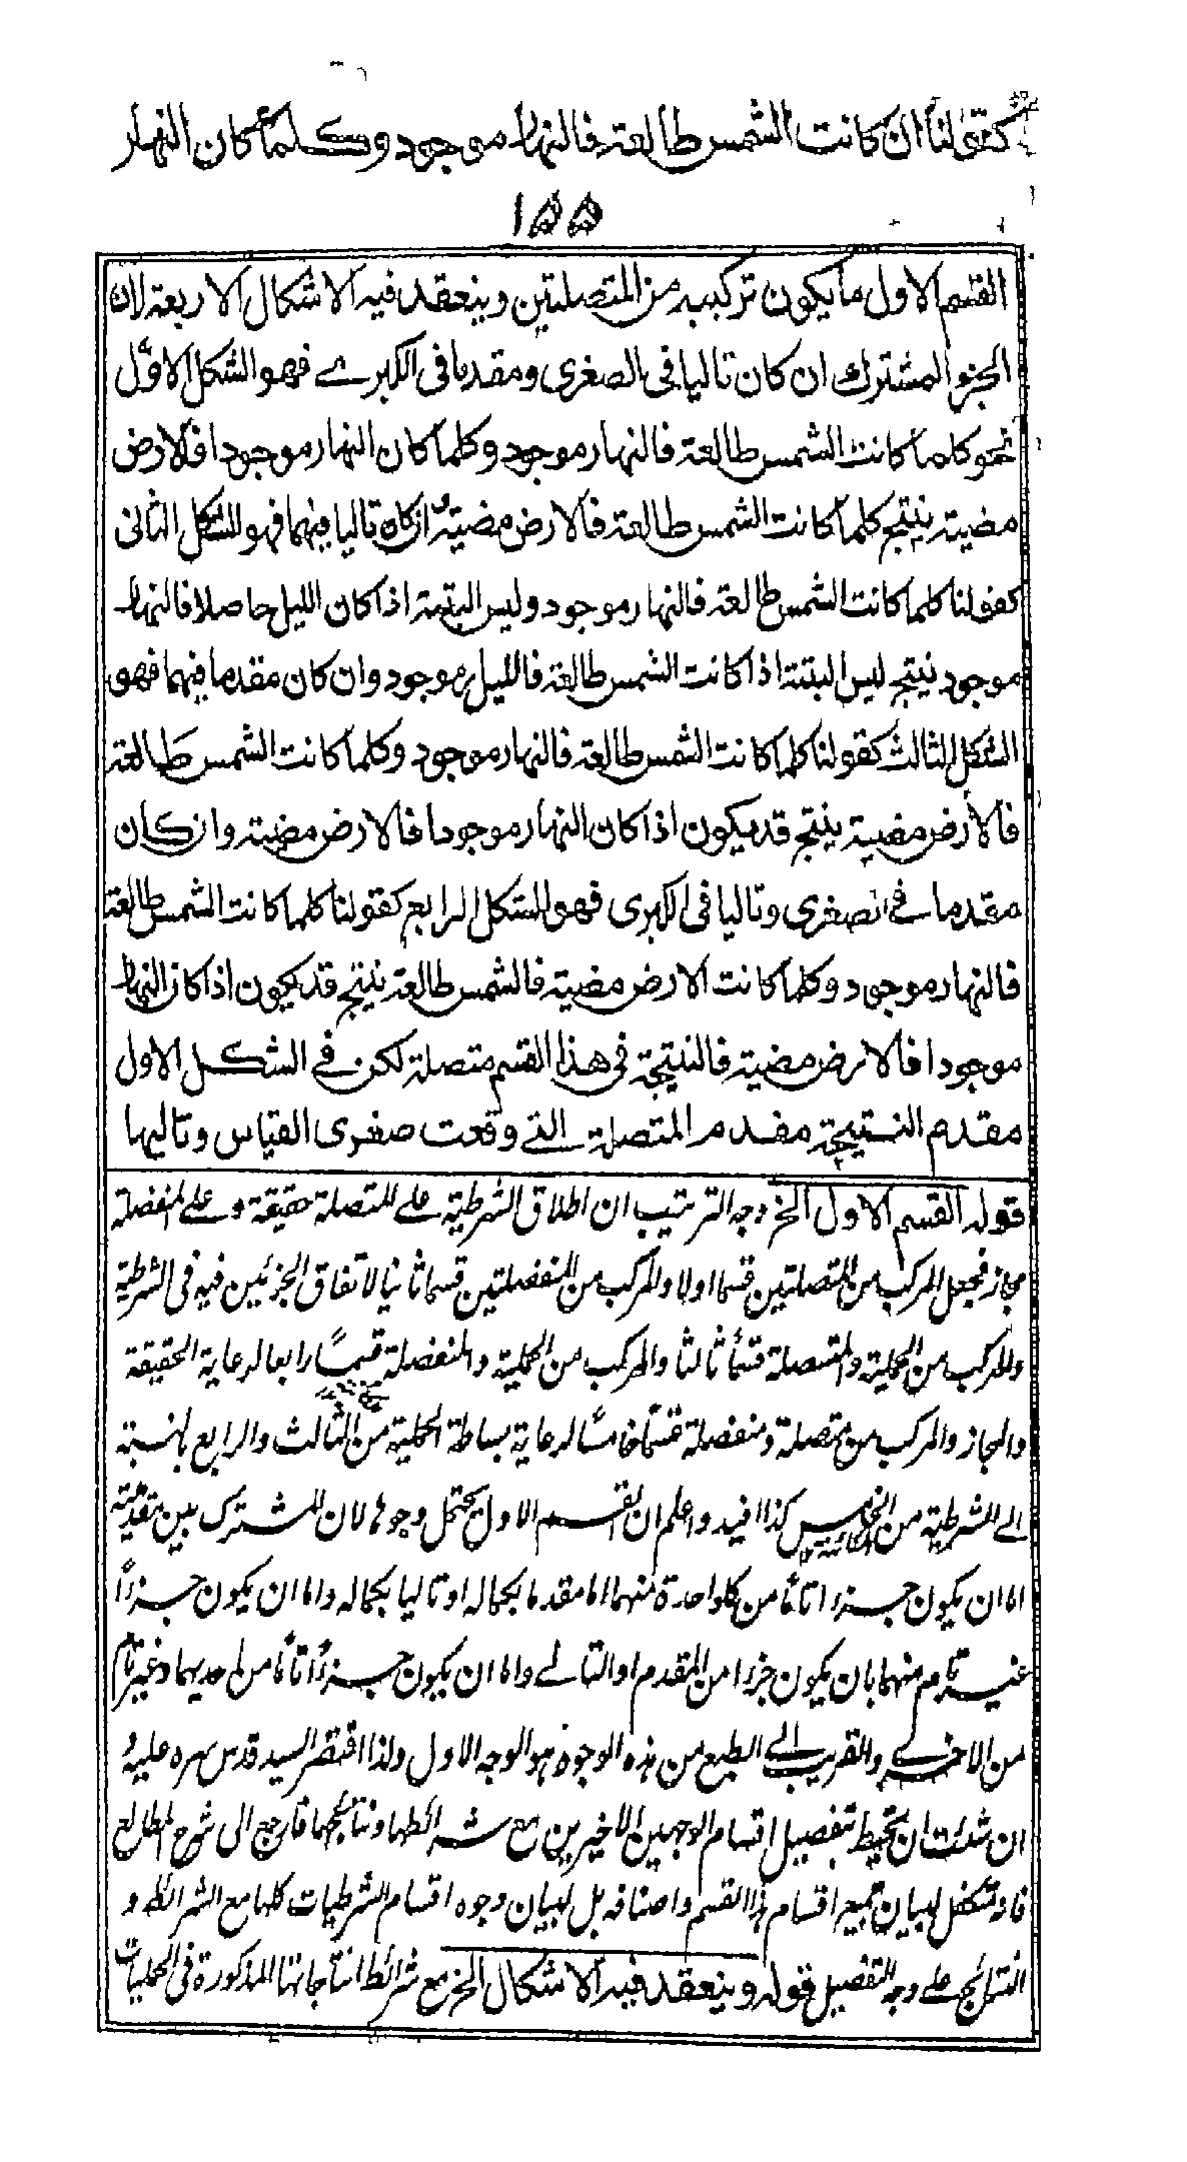 كقولنا ان كانت الشمس طالعة فالنهار موجود وكلما كان النهار
١٥٥
القسم الاول ما يكون تركيبه من المتصلتين وينعقد فيه الاشكال الاربعة لان
الجزو المشترك ان كان تاليا في الصغرى ومقدما في الكبرے فهو الشكل الاوّل
نحو كلما كانت الشمس طالعة فالنهار موجود وكلما كان النهار موجودا فالارض
مضيئة ينتج كلما كانت الشمس طالعة فالارض مضيئة وان كان تاليا فيهما فهو الشكل الثانى
كقولنا كلما كانت الشمس طالعة فالنهار موجود وليس البتة اذا كان الليل حاصلا فالنهار
موجود ينتج ليس البتة اذا كانت الشمس طالعة فالليل موجود وان كان مقدما فيهما فهو
الشكل الثالث كقولنا كلما كانت الشمس طالعة فالنهار موجود وكلما كانت الشمس طالعة
فالارض مضيئة ينتج قد يكون اذا كان النهار موجودا فالارض مضيئة وان كان
مقدما في الصغرى وتاليا في الكبرى فهو الشكل الرابع كقولنا كلما كانت الشمس طالعة
فالنهار موجود وكلما كانت الارض مضيئة فالشمس طالعة ينتج قد يكون اذا كان النهار
موجودا فالارض مضيئة فالنتيجة في هذا القسم متصلة لكن في الشكل الاول
مقدم النتيجة مقدم المتصلة التے وقعت صغرى القياس وتاليها
قوله القسم الاول الخ وجه الترتيب ان اطلاق الشرطية علے المتصلة حقيقة وعلے المنفصلة
مجاز فجعل المركب من المتصلتين قسما اولا والمركب من المنفصلتين قسما ثانيا لاتفاق الجزئين فيه في الشرطية
والمركب من الحملية والمتصلة قسمًا ثالثا والمركب من الحملية والمنفصلة قسمًا رابعا لرعاية الحقيقة
والمجاز والمركب من متصلة ومنفصلة قسمًا خامسًا لرعاية بساطة الحملية من الثالث والرابع بالنسبة
الے الشرطية من الخامس كذا افيد واعلم ان القسم الاول يحتمل وجوها لان المشترك بين مقدمتيه
اما ان يكون جزءا تامًا من كل واحدة منهما اما مقدما بكماله او تاليا بكماله واما ان يكون جزءًا
غير تام منهما بان يكون جزءا من المقدم او التالے واما ان يكون جزءًا تامًا من احديهما وغير تام
من الاخرے والقريب الے الطبع من هذه الوجوه هو الوجه الاول ولذا اقتصر السيد قدس سره عليه و
ان شئت ان تحيط بتفصيل اقسام الوجهين الاخيرين مع شرائطها ونتائجها فارجع الى شرح المطالع
فانه متكفل لبيان جميع اقسام هذا القسم واصنافه بل لبيان وجوه اقسام الشرطيات كلها مع الشرائط و
النتائج علے وجه التفصيل قوله وينعقد فيه الاشكال الخ مع شرائط انتاجاتها المذكورة في الحمليات